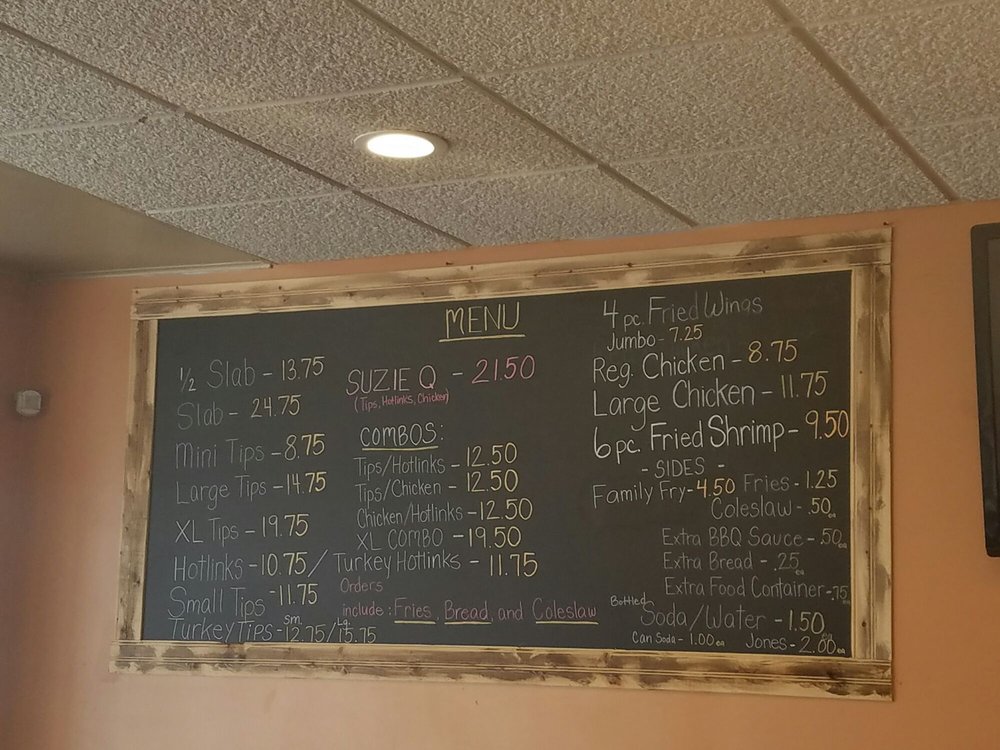 MENU
1/2 Slab - 13.75
Slab - 24.75
Mini Tips - 8.75
Large Tips - 14.75
XL Tips - 19.75
Hotlinks - 10.75 / Turkey Hotlinks - 11.75
Small Tips - 11.75
Turkey Tips - Sm. 12.75 / Lg. 15.75
SUZIE Q - 21.50
(Tips, Hotlinks, Chicken)
COMBOS:
Tips/Hotlinks - 12.50
Tips/Chicken - 12.50
Chicken/Hotlinks - 12.50
XL COMBO - 19.50
Orders
include: Fries, Bread, and Coleslaw
4 pc. Fried Wings
Jumbo - 7.25
Reg. Chicken - 8.75
Large Chicken - 11.75
6 pc. Fried Shrimp - 9.50
- SIDES -
Family Fry - 4.50 Fries - 1.25
Coleslaw - .50 ea
Extra BBQ Sauce - .50 ea
Extra Bread - .25 ea
Extra Food Container - .75
Bottled Soda/Water - 1.50 ea
Can Soda - 1.00 ea Jones - 2.00 ea